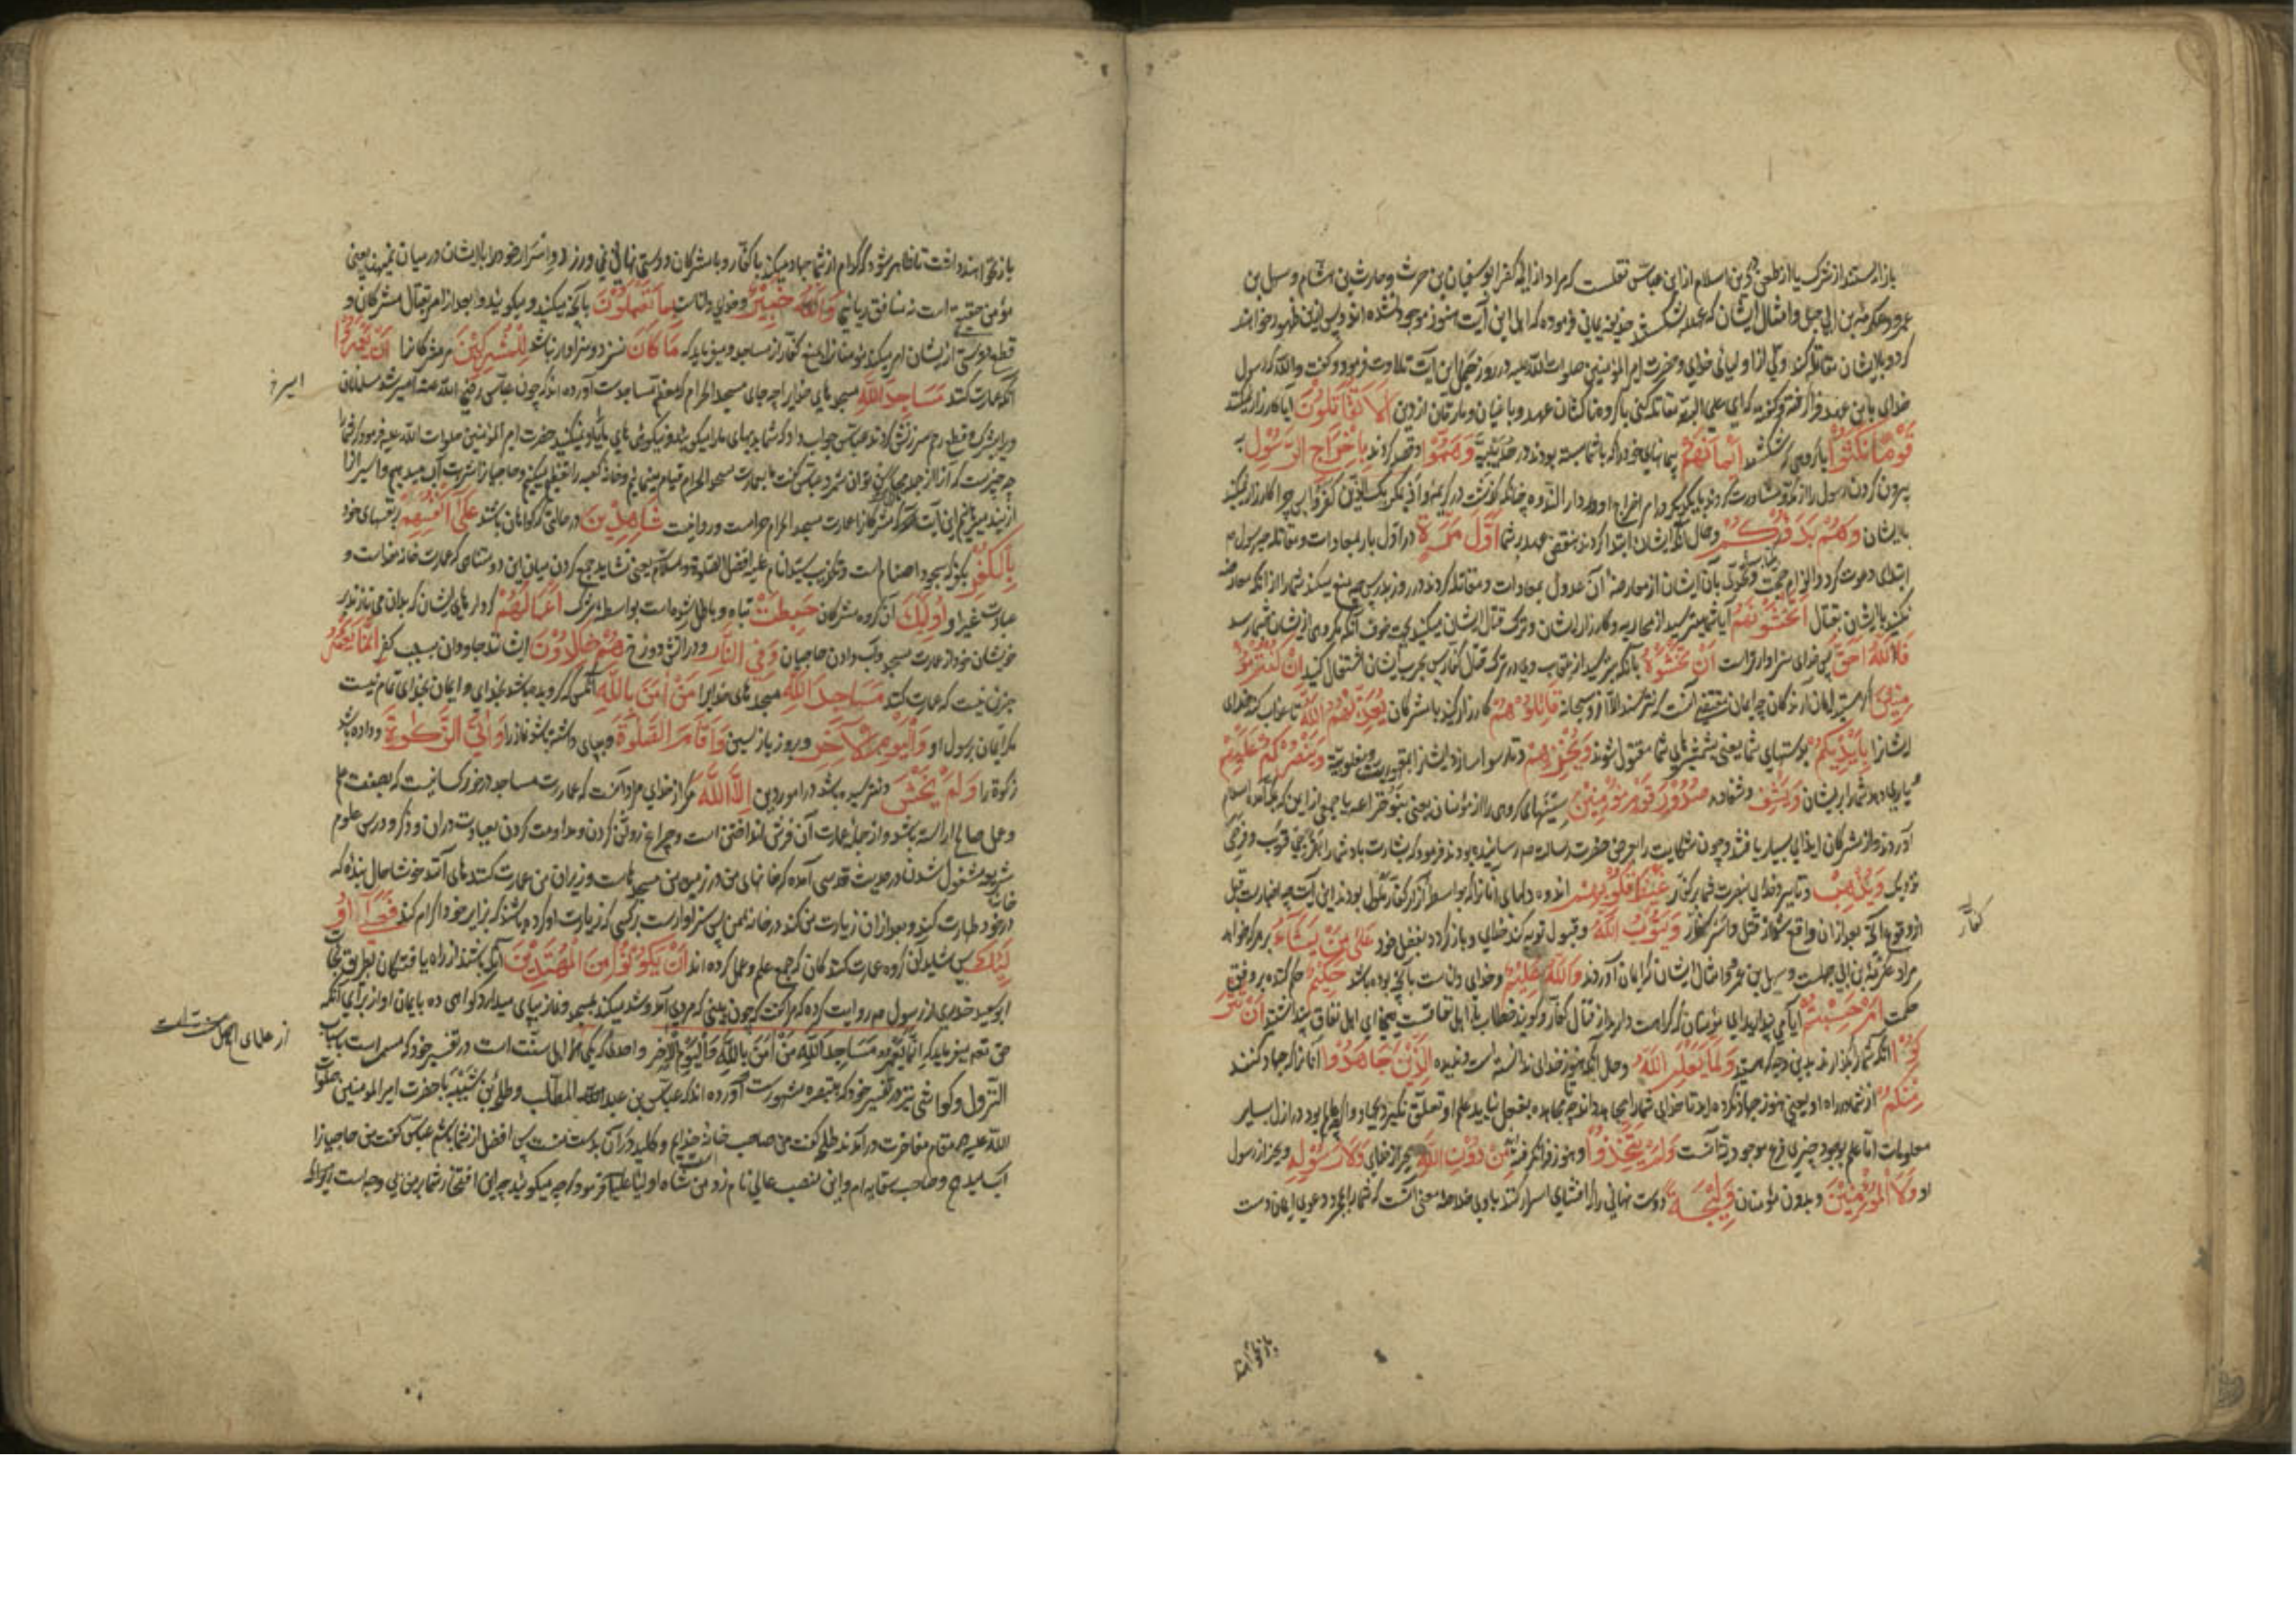 باز ایستند از شرک یا از طعن در دین اسلام از ابن عباس نقلست که مراد از ائمه کفر ابوسفیان بن حرث و حارث بن هشام و سهل بن
عمرو و عکرمة بن ابی جهل و امثال ایشان که عهد شکستند حذیفه یمانی فرموده که اهل این آیت هنوز موجود نشده اند و پس ازین ظهور خواهند
کرد و با ایشان مقاتله کند ولی از اولیای خدای و حضرت امیر المؤمنین صلوات الله علیه در روز جمل این آیت تلاوت فرمود و گفت والله که رسول
خدای با من عهد فرا گرفته و گفته که ای علی البته مقاتله کنی با گروه ناکثان عهد و باغیان و مارقان از دین اَلَا تُقَاتِلُونَ ایا کارزار نمیکنید
قَوْمًا نَكَثُوا با گروهی که شکستند اَيْمَانَهُمْ پیمانهای خود را که با شما بسته بودند در حدیبیه وَهَمُّوا و قصد کردند بِاِخْرَاجِ الرَّسُولِ به
بیرون کردن رسول را از مکه و مشاورت کردند با یکدیگر در ام اخراج او در دار الندوه چنانکه گذشت در کریمه و اذ یمکر بک الذین کفروا پس چرا کارزار نمیکنید
با ایشان وَهُمْ بَدَؤُكُمْ و حال آنکه ایشان ابتدا کردند بنقض عهد بر شما اَوَّلَ مَرَّةٍ در اول بار بمعادات و مقاتله چه رسول م
ابتدای دعوت کرد والزام حجت و تحدی بآن ایشان از معارضه آن عدول بمعادات و مقاتله کردند در روز بدر پس چه منع میکند شما را از آنکه معارضه
نکنید با ایشان بقتال اَتَخْشَوْنَهُمْ آیا شما میترسید از محاربه و کارزار ایشان و ترک قتال ایشان میکنید بجهت خوف آنکه مکروهی از ایشان بشما رسد
فَاللّٰهُ اَحَقُّ پس خدای سزاوارتر است اَنْ تَخْشَوْهُ بآنکه بترسید از عقاب وی در ترک قتال کفار پس بحرب ایشان اشتغال کنید اِنْ كُنْتُمْ مُؤْ
مِنِينَ اگر هستید از ایمان آورندگان چه ایمان مقتضی آنست که نترسند الا از او سبحانه قَاتِلُوهُمْ کارزار کنید با مشرکان يُعَذِّبْهُمُ اللّٰهُ تا عذاب کند خدای
ایشانرا بِاَيْدِيكُمْ بدستهای شما یعنی بشمشیرهای شما مقتول شوند وَيُخْزِهِمْ و تا رسوا سازد ایشانرا بمقهوریت و مغلوبیت وَيَنْصُرْكُمْ عَلَيْهِمْ
و یاری دهد شما را بر ایشان وَيَشْفِ و شفا دهد صُدُورَ قَوْمٍ مُؤْمِنِينَ سینهای گروهی را از مؤمنان یعنی بنو خزاعه یا جمعی از یمن که بمکه آمده اسلام
آوردند و از مشرکان ایذای بسیار یافتند و چون شکایت را بعرض حضرت رسالت م رسانیده بودند فرمود که بشارت باد شما را بفرجی قریب و فرجی
نزدیک وَيُذْهِبْ و تا ببرد خدای بنصرت شما بر کفار غَيْظَ قُلُوبِهِمْ اندوه دلهای آنانرا که بواسطه آزار کفار ملول بودند این آیت چه اخبارست قبل
از وقوع آنچه بعد از آن واقع شد از قتل و اسر کفار وَيَتُوبُ اللّٰهُ و قبول توبه کند خدای و باز گردد بفضل خود عَلٰى مَنْ يَشَاءُ بر هر که خواهد
کفار
مراد عکرمة بن ابی جهلست و سهل بن عمرو و امثال ایشان که ایمان آوردند وَاللّٰهُ عَلِيمٌ و خدای داناست بآنچه بوده باشد حَكِيمٌ حکم کننده بر وفق
حکمت اَمْ حَسِبْتُمْ آیا می پندارید ای مؤمنان که کراهت دارید از قتال کفار و گویند خطاب با اهل نفاقست یعنی ای اهل نفاق پنداشتید اَنْ تُتْرَ
كُوا آنکه شما را بگذارند بدین وجه که هستید وَلَمَّا يَعْلَمِ اللّٰهُ و حال آنکه هنوز خدای ندانسته است و ندیده الَّذِينَ جَاهَدُوا آنانرا که جهاد کنند
مِنْكُمْ از شما در راه او یعنی هنوز جهاد نکرده اید تا خدای شما را مجاهد داند چه تا مجاهده بفعل نیاید علم او تعلق نگیرد
معلومات اما علم بوجود چیزی فرع موجودیت آنست وَلَمْ يَتَّخِذُوا و هنوز فرا نگرفته مِنْ دُونِ اللّٰهِ بجز از خدای وَلَا رَسُولِهِ و بجز از رسول
او وَلَا الْمُؤْمِنِينَ و بدون مؤمنان وَلِيجَةً دوست نهانی را که افشای اسرار کنند با وی خلاصه معنی آنست که شما را بمجرد دعوی ایمان دست
باز نخواهند
باز نخواهند داشت تا ظاهر شود که کدام از شما جهاد میکند با کفار و با مشرکان دوستی نهانی نمی ورزد و اسرار خود را با ایشان در میان نمینهد یعنی
مؤمن حقیقی است نه منافق ریائی وَاللّٰهُ خَبِيرٌ و خدای داناست بِمَا تَعْمَلُونَ بآنچه میکنید و میگوئید و بعد از امر بقتال مشرکان و
قطع دوستی از ایشان امر میکند مؤمنانرا بمنع کفار از مساجد و میفرماید که مَا كَانَ نسزد و سزاوار نباشد لِلْمُشْرِكِينَ مر مشرکانرا اَنْ يَعْمُرُوا
آنکه عمارت کنند مَسَاجِدَ اللّٰهِ مسجدهای خدایرا چه جای مسجد الحرام که معظم مساجدست آورده اند که چون عباس رضی الله عنه اسیر شد مسلمانان
اسیر
ویرا بشرک و قطع رحم سرزنش کردند عباس جواب داد که شما بدیهای ما را میگوئید و نیکوئی های ما یاد نمیکنید حضرت امیر المؤمنین صلوات الله علیه فرمود که شما را
چه چیزست که آنرا از جمله محاسن توان شمرد عباس گفت ما بعمارت مسجد الحرام قیام مینمائیم و خانه کعبه را تعظیم میکنیم و حاجیانرا شربت آب میدهیم و اسیرانرا
از بند میرهانیم این آیت آمد که مشرکانرا عمارت مسجد الحرام جز است و روا نیست شَاهِدِينَ در حالتی که گواهان باشند عَلٰى اَنْفُسِهِمْ بر نفسهای خود
بِالْكُفْرِ بکفر که سجود اصنام است و تکذیب سید انام علیه افضل الصلوة والسلام یعنی نشاید جمع کردن میان این دو متنافی که عمارت خانه خداست و
عبادت غیر او اُولٰئِكَ آن گروه مشرکان حَبِطَتْ تباه و باطل شده است بواسطه شرک اَعْمَالُهُمْ کردارهای ایشان که بدان می نازند بر
خویشان خود از عمارت مسجد و آب دادن حاجیان وَفِي النَّارِ و در آتش دوزخ هُمْ خَالِدُونَ ایشانند جاودان بسبب کفر اِنَّمَا يَعْمُرُ
جز این نیست که عمارت کند مَسَاجِدَ اللّٰهِ مسجدهای خدایرا مَنْ اٰمَنَ بِاللّٰهِ آنکس که گرویده باشد بخدای و ایمان بخدای تمام نیست
مگر بایمان رسول او وَالْيَوْمِ الْاٰخِرِ و بروز بازپسین وَاَقَامَ الصَّلٰوةَ و بپای داشته باشد نماز را وَاٰتَى الزَّكٰوةَ و داده باشد
زکوة را وَلَمْ يَخْشَ و نترسیده باشد در امور دین اِلَّا اللّٰهَ مگر از خدای مراد آنست که عمارت مساجد در خور کسانیست که بصفت علم
و عمل صالح آراسته باشد و از جمله عمارت آن فرش انداختن است و چراغ روشن کردن و مداومت کردن بعبادت در آن و ذکر و درس علوم
مشغول شدن در حدیث قدسی آمده که خانهای من در زمین من مسجدهاست و زایران من عمارت کنندهای آنند خوشا حال بنده که
در خانه خود طهارت کند و بعد از آن زیارت من کند در خانه من پس سزاوارست بر کسی که زیارت او کرده باشند که بزایر خود اکرام کند فَعَسٰى اُو
لٰئِكَ پس شاید آن گروه عمارت کنندگان که جمع علم و عمل کرده اند اَنْ يَكُونُوا مِنَ الْمُهْتَدِينَ آنکه باشند از راه یافتگان بطریق نجات
ابو سعید خدری از رسول م روایت کرده که مرا گفت که چون بینی که مردی آمد و شد میکند بمسجد و نماز بپای میدارد گواهی ده بایمان او از برای آنکه
حق تعم میفرماید که اِنَّمَا يَعْمُرُ مَسَاجِدَ اللّٰهِ مَنْ اٰمَنَ بِاللّٰهِ وَالْيَوْمِ الْاٰخِرِ و واحدی که یکی از اهل سنت است در تفسیر خود که مسمی است باسباب
از علمای اهل سنت است
النزول و کواشی نیز در تفسیر خود که بتبصره مشهورست آورده اند که عباس بن عبد المطلب و طلحة بن شیبه با حضرت امیر المومنین صلوات
الله علیه در مقام مفاخرت در آمدند طلحه گفت من صاحب خانه خدایم و کلید در آن بدست منست پس افضل از شما باشم عباس گفت من حاجیانرا
آب میدهم و صاحب سقایه ام و این منصب عالی نام زد من است شاه اولیا علیا فرمود که چه میگوئید چه این افتخار شما بر من بی وجه است